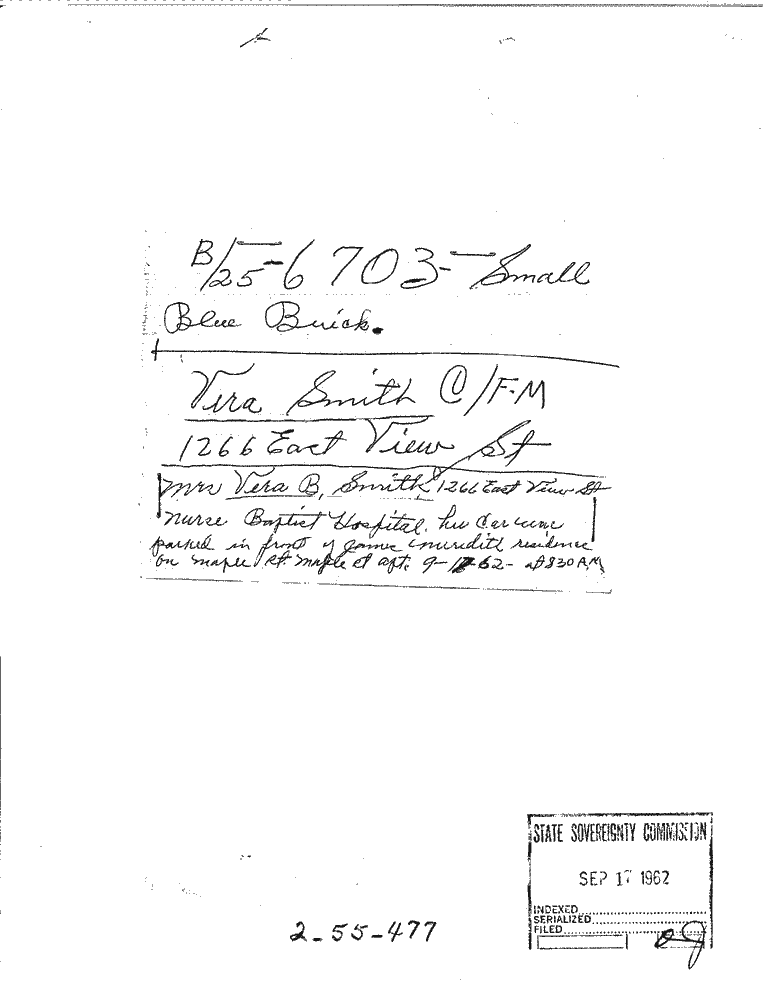 B/25-6703- Small
Blue Buick.
Vera Smith C/F-M
1266 East View St
Mrs Vera B, Smith 1266 East View St
Nurse Baptist Hospital. her car was
parked in front of James Meredith residence
on maple st. maple st apt. 9-17-62- at 830 A,M
STATE SOVEREIGNTY COMMISSION
SEP 17 1962
INDEXED
SERIALIZED
FILED
2-55-477